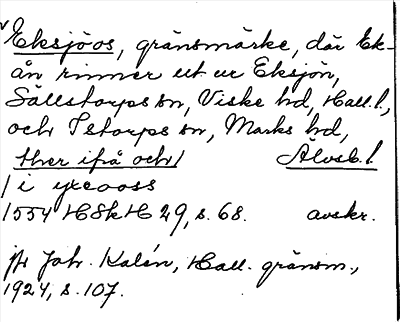 Eksjöos, gränsmärke, där Ek-
ån rinner ut ur Eksjön,
Sällstorps sn, Viske hd, Hall. l.,
och Istorps sn, Marks hd,
ther ifrå och/ Älvsb. l.
/i yxeooss
1554 HSkH 29, s. 68. avskr.
jfr Joh. Kalén, Hall. gränsm.,
1924, s. 107.